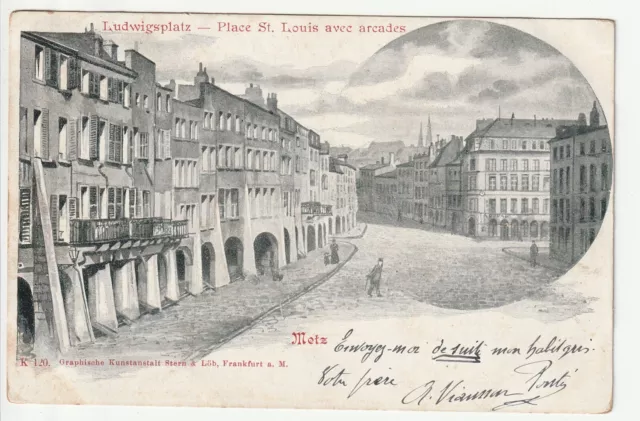 Ludwigsplatz — Place St. Louis avec arcades
Metz
Envoyez-moi de suite mon habit gris.
Votre frère
K 120. Graphische Kunstanstalt Stern & Löb, Frankfurt a. M.